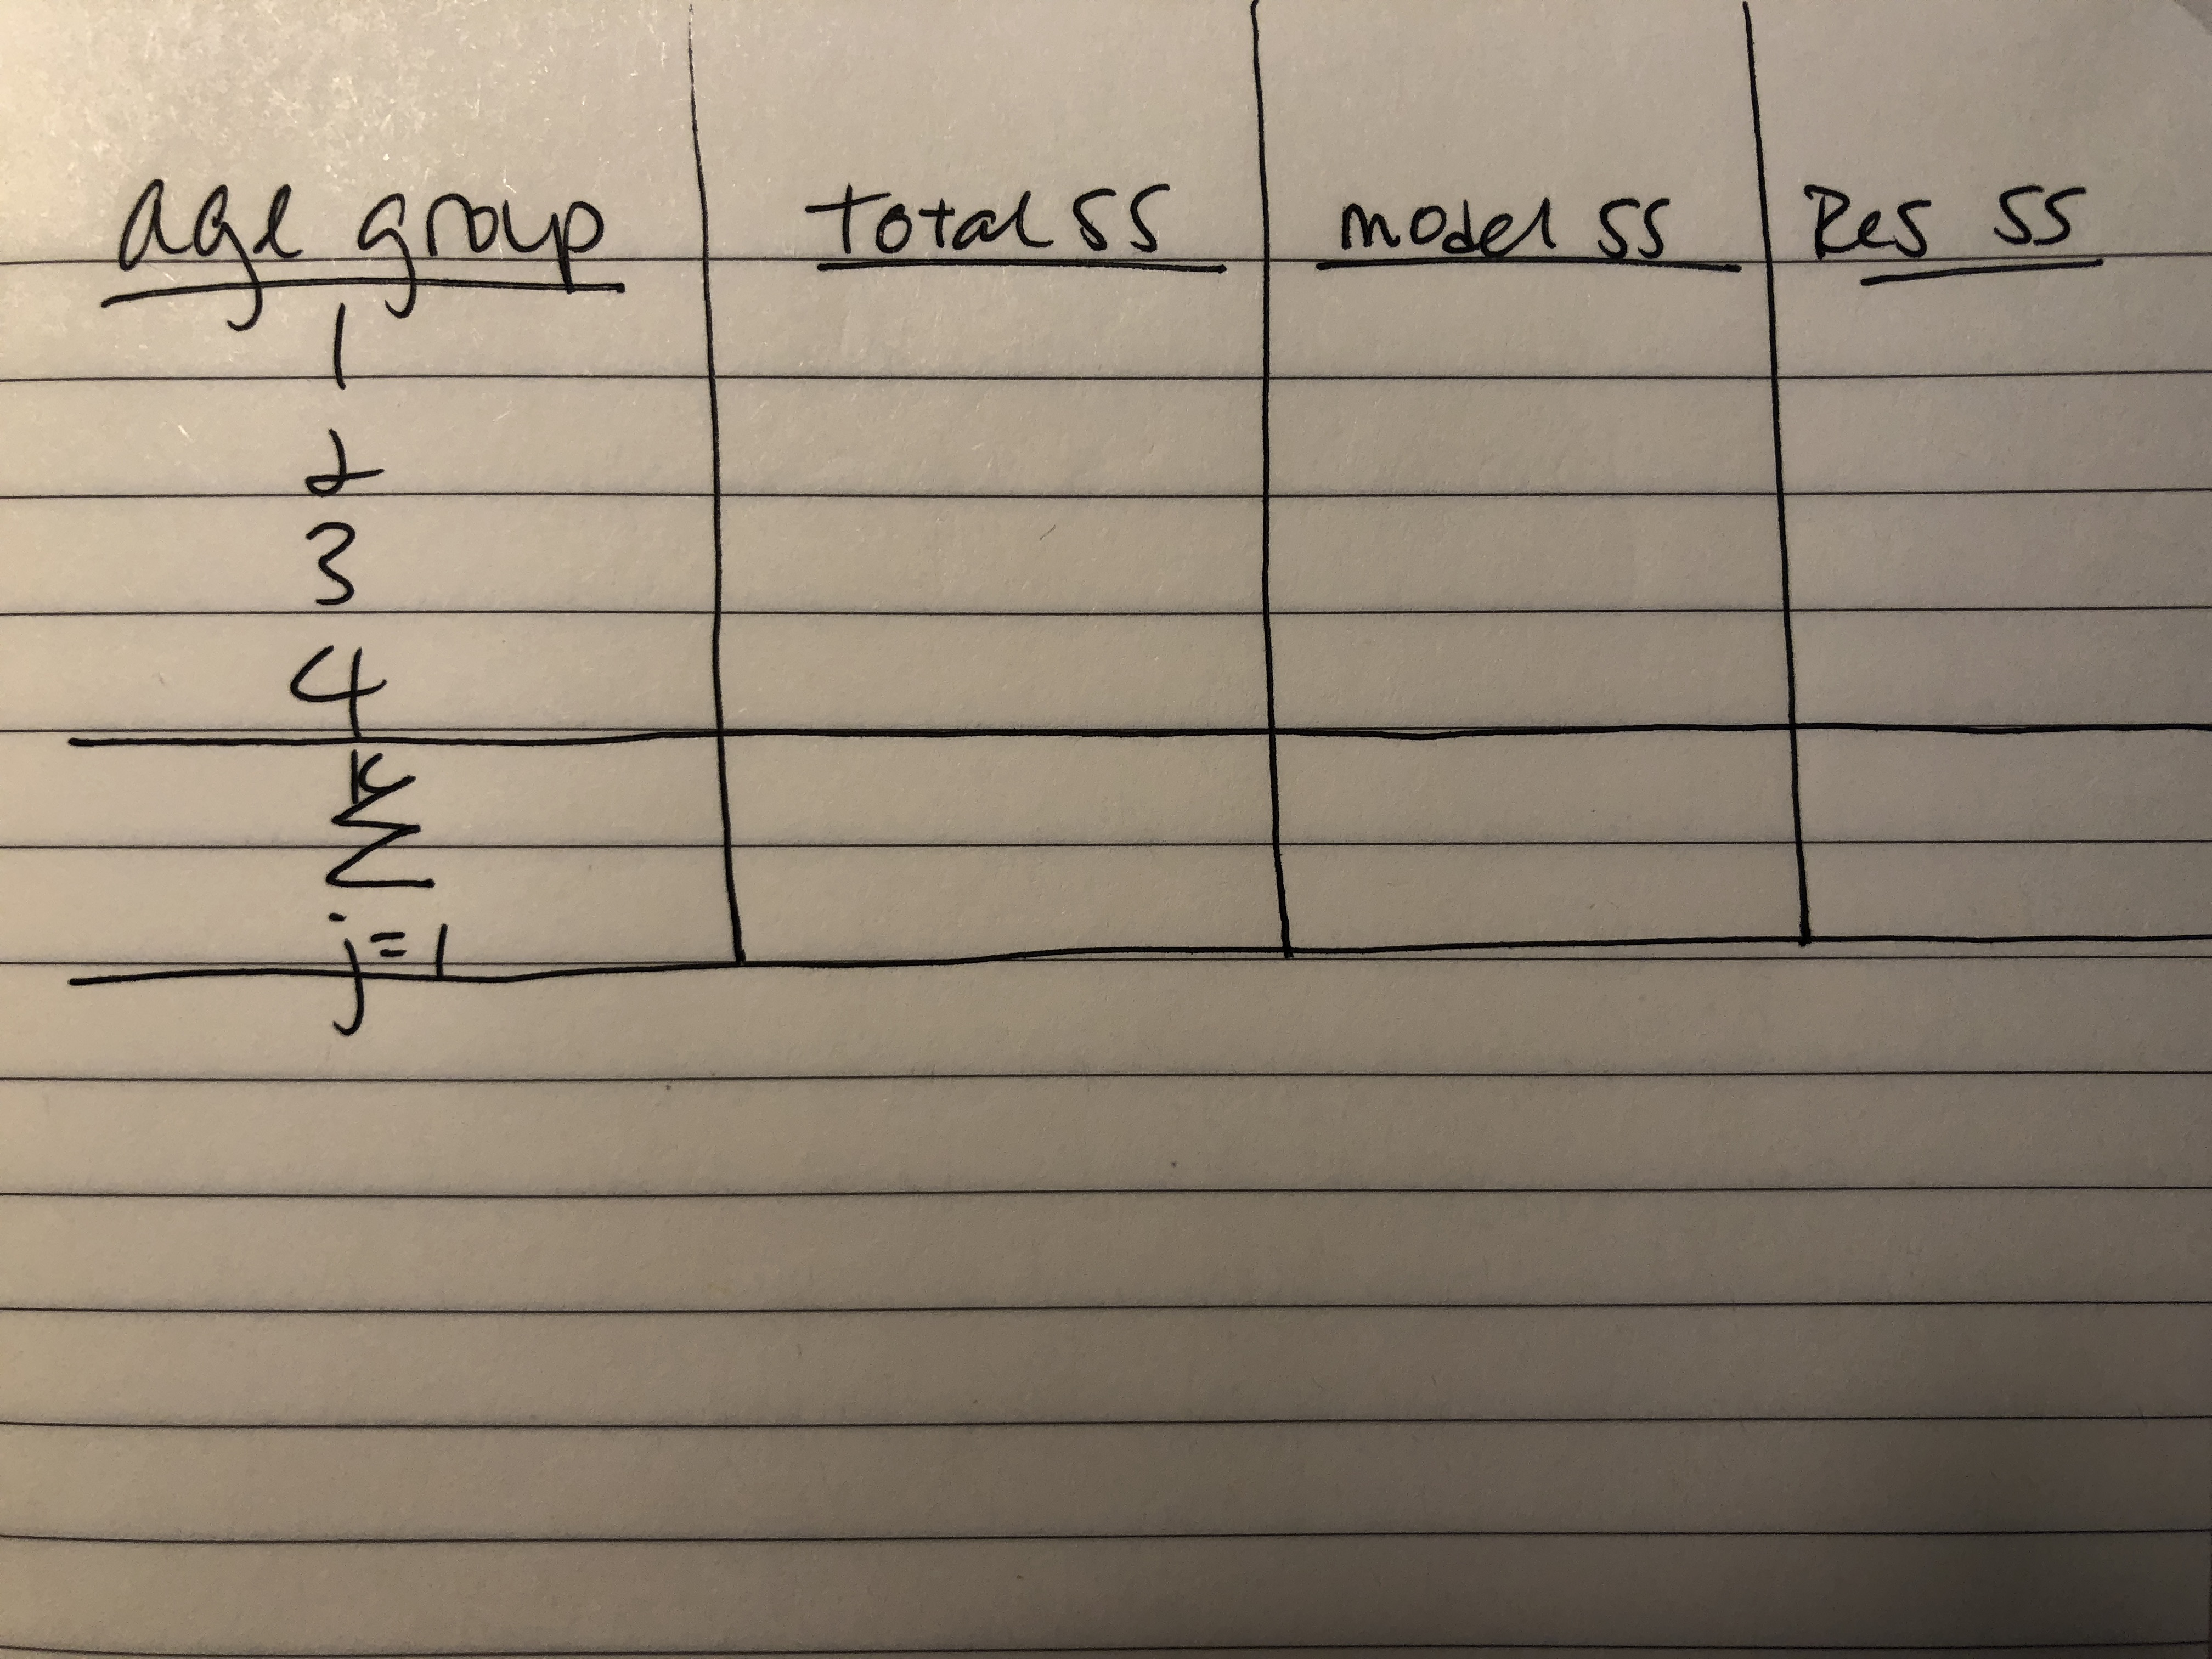 age group total SS model SS Res SS
1
2
3
4
K
Σ
j=1